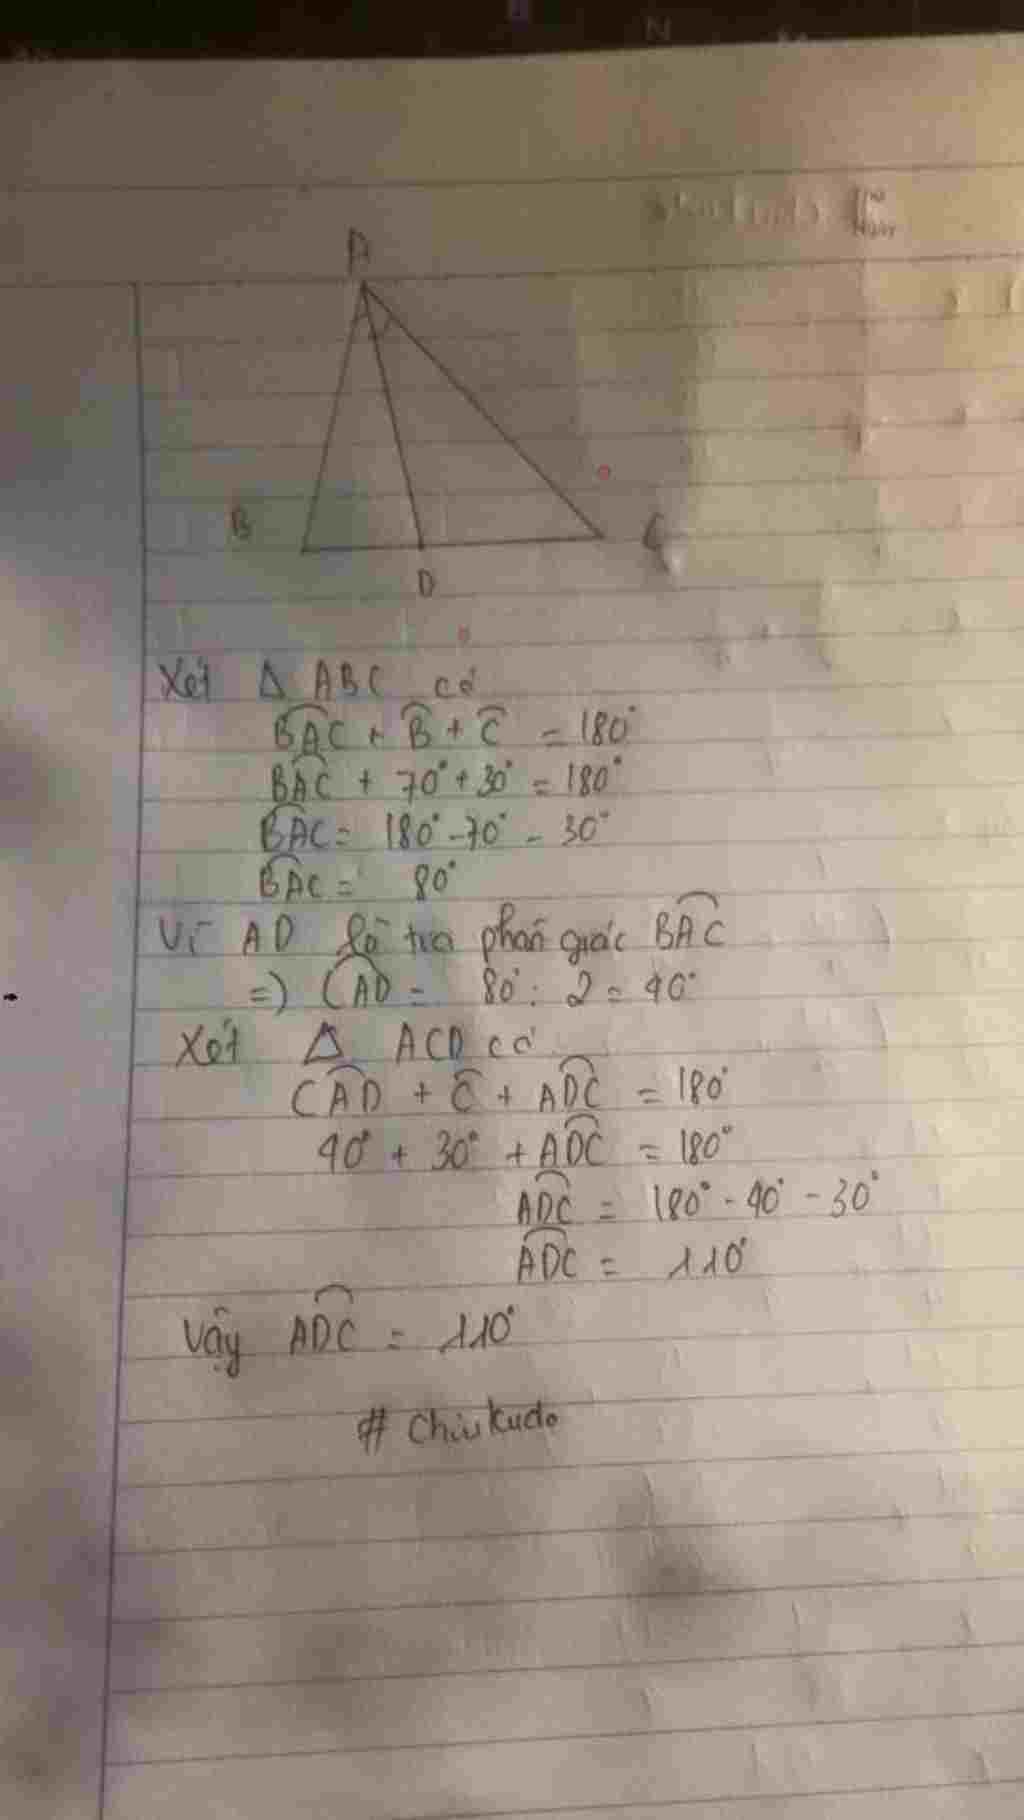 A
B
C
D
Xét Δ ABC có
BAC + B + C = 180°
BAC + 70° + 30° = 180°
BAC = 180° - 70° - 30°
BAC = 80°
Vì AD là tia phân giác BAC
=) CAD = 80° : 2 = 40°
Xét Δ ACD có
CAD + C + ADC = 180°
40° + 30° + ADC = 180°
ADC = 180° - 40° - 30°
ADC = 110°
Vậy ADC = 110°